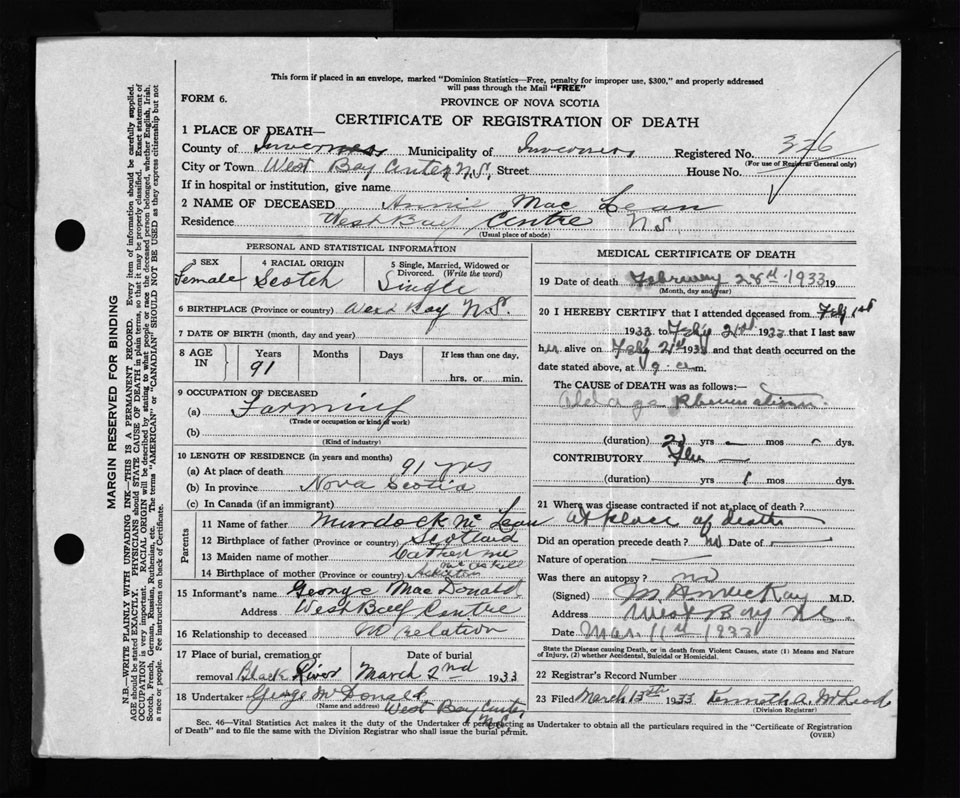 This form if placed in an envelope, marked "Dominion Statistics—Free, penalty for improper use, $300," and properly addressed
will pass through the Mail "FREE"
FORM 6.
PROVINCE OF NOVA SCOTIA
CERTIFICATE OF REGISTRATION OF DEATH
1 PLACE OF DEATH—
County of Inverness Municipality of Inverness Registered No. 376
(For use of Registrar General only)
City or Town West Bay Center N.S. Street House No.
If in hospital or institution, give name
2 NAME OF DECEASED Annie Mac Lean
Residence West Bay Centre N.S.
(Usual place of abode)
PERSONAL AND STATISTICAL INFORMATION
3 SEX 4 RACIAL ORIGIN 5 Single, Married, Widowed or
Divorced. (Write the word)
Female Scotch Single
6 BIRTHPLACE (Province or country) West Bay N.S.
7 DATE OF BIRTH (month, day and year)
8 AGE IN Years Months Days If less than one day,
91
hrs. or min.
9 OCCUPATION OF DECEASED
(a) Farming
(Trade or occupation or kind of work)
(b)
(Kind of industry)
10 LENGTH OF RESIDENCE (in years and months)
(a) At place of death 91 yrs
(b) In province Nova Scotia
(c) In Canada (if an immigrant)
Parents
11 Name of father Murdock Mc Lean
12 Birthplace of father (Province or country) Scotland
13 Maiden name of mother Catherine
14 Birthplace of mother (Province or country)
15 Informant's name George MacDonald
Address West Bay Centre
16 Relationship to deceased no relation
17 Place of burial, cremation or removal Date of burial
Black River March 2nd 1933
18 Undertaker George McDonald
(Name and address) West Bay Centre
N.S.
MEDICAL CERTIFICATE OF DEATH
19 Date of death February 28th 1933 19
(Month, day and year)
20 I HEREBY CERTIFY that I attended deceased from Feby 1st
1933 to Feby 2nd 1933 that I last saw
her alive on Feby 2nd 1933 and that death occurred on the
date stated above, at 9. a m.
The CAUSE OF DEATH was as follows:—
Old age Rheumatism
(duration) 2 yrs — mos dys.
CONTRIBUTORY Flu —
(duration) yrs 1 mos dys.
21 Where was disease contracted if not at place of death?
At place of death
Did an operation precede death? no Date of —
Nature of operation —
Was there an autopsy? no
(Signed) M.D.
Address West Bay N.S.
Date Mar. 11th 1933
State the Disease causing Death, or in death from Violent Causes, state (1) Means and Nature
of Injury, (2) whether Accidental, Suicidal or Homicidal.
22 Registrar's Record Number
23 Filed March 13th 1933 Kenneth A. McLeod
(Division Registrar)
Sec. 46—Vital Statistics Act makes it the duty of the Undertaker or person acting as Undertaker to obtain all the particulars required in the "Certificate of Registration
of Death" and to file the same with the Division Registrar who shall issue the burial permit.
(OVER)
MARGIN RESERVED FOR BINDING
N.B.—WRITE PLAINLY WITH UNFADING INK—THIS IS A PERMANENT RECORD. Every item of information should be carefully supplied.
AGE should be stated EXACTLY. PHYSICIANS should STATE CAUSE OF DEATH in plain terms, so that it may be properly classified. Exact statement of
OCCUPATION is very important. RACIAL ORIGIN will be described by stating to what people or race the deceased person belonged, whether English, Irish,
Scotch, French, German, Russian, Ruthenian, etc. The terms "AMERICAN" or "CANADIAN" SHOULD NOT BE USED as they express citizenship but not
a race or people. Fee instructions on back of Certificate.